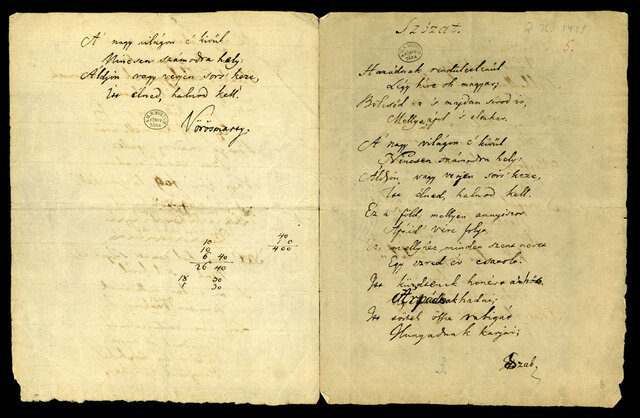 A' nagy világon e' kivűl
Nincsen számodra hely:
Áldjon vagy verjen sors' keze,
Itt élned, halnod kell.
Vörösmarty.
10 40
10 10
6. 40 400
26 40
18 30
1 30
Szózat.
5.
Hazádnak rendületlenűl
Légy híve oh magyar;
Bölcsőd az 's majdan sírod is,
Melly ápol 's eltakar.
A' nagy világon e' kivűl
Nincsen számodra hely:
Áldjon vagy verjen sors' keze,
Itt élned, halnod kell.
Ez a' föld, mellyen annyiszor
Apáid' vére folyt,
Ez, mellyhez minden szent nevet
Egy ezred év csatolt.
Itt küzdtenek honért a hős
Árpádnak hadai;
Itt törtek össze rabigát
Hunyadnak karjai;
Szab
3.